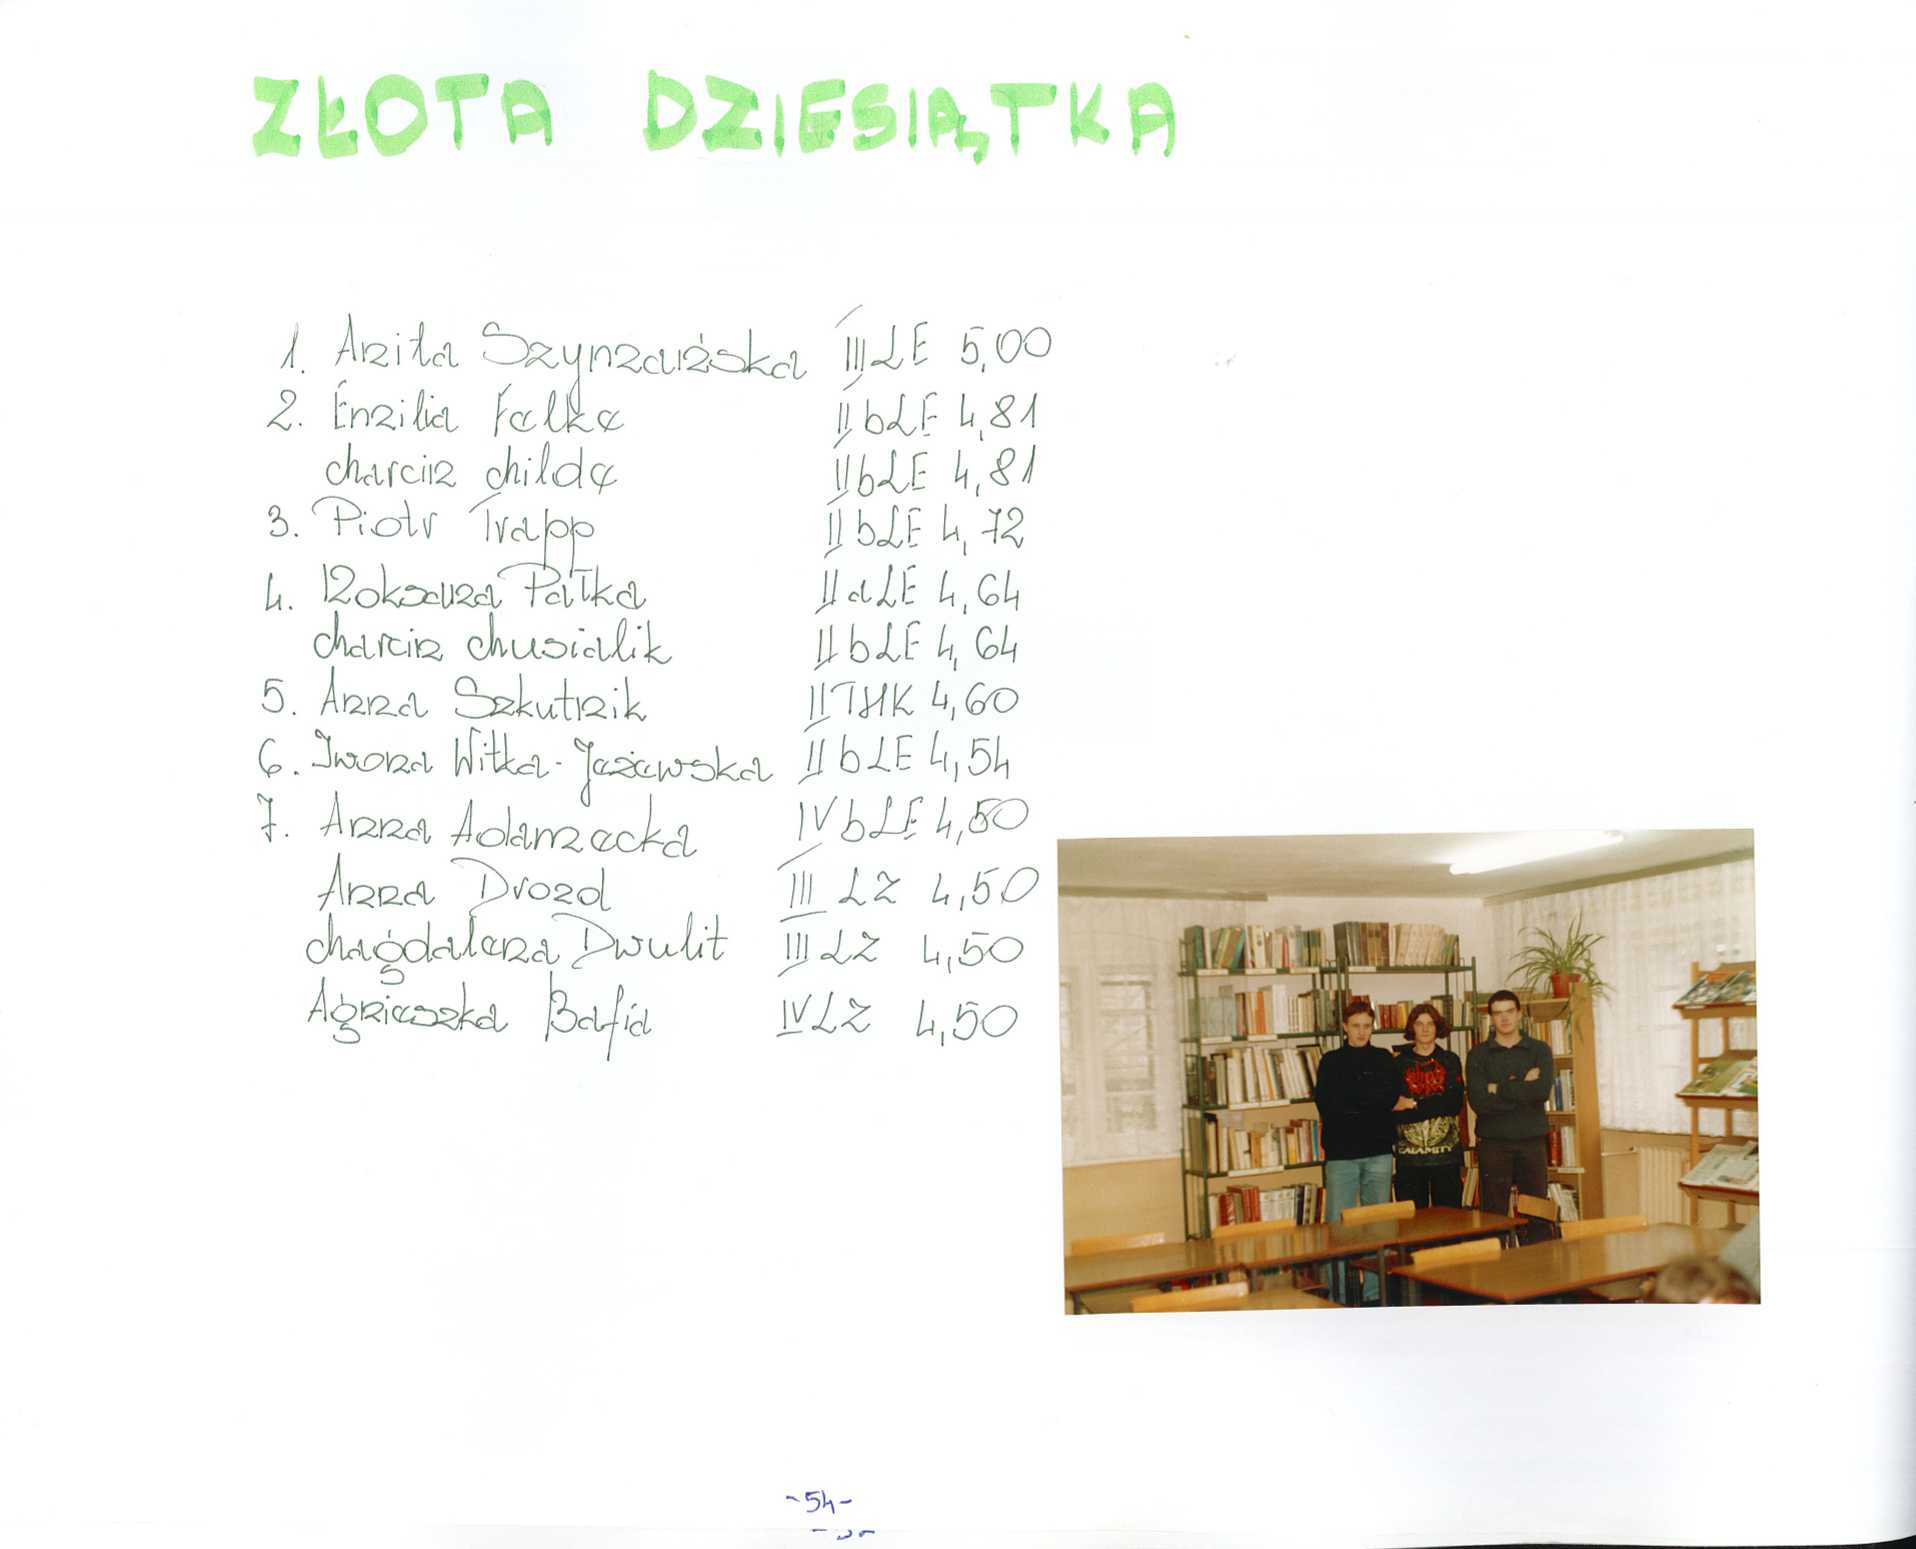 ZŁOTA DZIESIĄTKA
1. Anita Szymańska III LE 5,00
2. Emilia Falke II b LE 4,81
Marcin Milde II b LE 4,81
3. Piotr Trapp II b LE 4,72
4. Roksana Pałka II a LE 4,64
Marcin Musialik II b LE 4,64
5. Anna Szkutnik II THK 4,60
6. Iwona Witka-Jeżewska II b LE 4,54
7. Anna Adamecka IV b LE 4,50
Anna Drozd III LZ 4,50
Magdalena Dwulit III LZ 4,50
Agnieszka Bafia IV LZ 4,50
CALAMITY
-54-